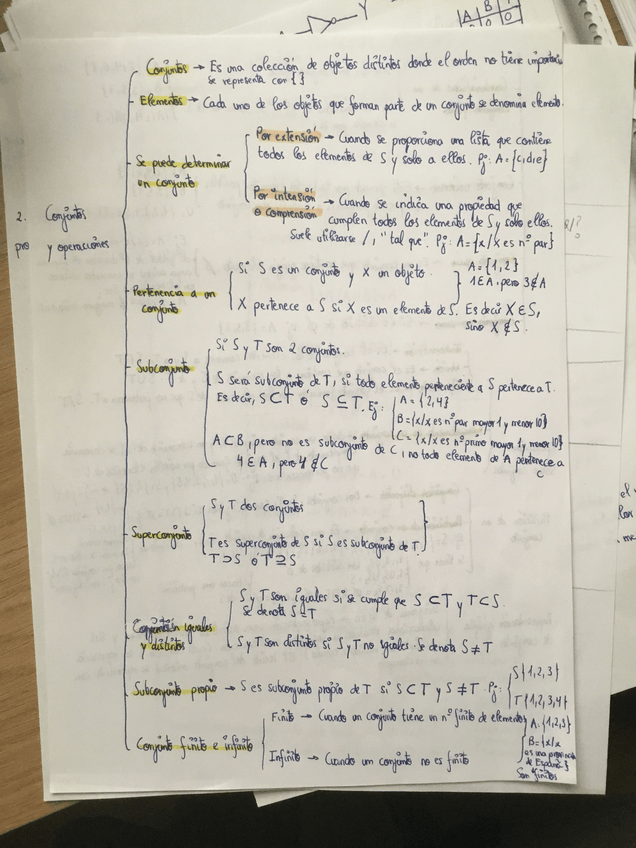 Y
A B Y
0 0
Conjuntos → Es una colección de objetos distintos donde el orden no tiene importancia
se representa con { }
Elementos → Cada uno de los objetos que forman parte de un conjunto se denomina elemento.
2. Conjuntos
pro y operaciones
Se puede determinar
un conjunto
Por extensión → Cuando se proporciona una lista que contiene
todos los elementos de S y solo a ellos. Pj: A = {c,d,e}
Por intensión
o comprensión → Cuando se indica una propiedad que
cumplen todos los elementos de S y solo ellos.
Suele utilizarse /, "tal que". Pj: A = {x/x es nº par}
Pertenencia a un
conjunto
Si S es un conjunto y X un objeto.
X pertenece a S si X es un elemento de S.
A = {1,2}
1 ∈ A, pero 3 ∉ A
Es decir X ∈ S,
sino X ∉ S.
Subconjunto
Si S y T son 2 conjuntos.
S será subconjunto de T, si todo elemento perteneciente a S pertenece a T.
Es decir, S ⊂ T ó S ⊆ T. Ej:
A = {2,4}
B = {x/x es nº par mayor 1 y menor 10}
C = {x/x es nº primo mayor 1 y menor 10}
A ⊂ B, pero no es subconjunto de C, no todo elemento de A pertenece a
C
4 ∈ A, pero 4 ∉ C
Superconjunto
S y T dos conjuntos
T es superconjunto de S si S es subconjunto de T.
T ⊃ S ó T ⊇ S
iguales
y distintos
S y T son iguales si se cumple que S ⊂ T y T ⊂ S.
Se denota S = T
S y T son distintos si S y T no iguales. Se denota S ≠ T
Subconjunto propio → S es subconjunto propio de T si S ⊂ T y S ≠ T. Pj:
S {1,2,3}
T {1,2,3,4}
Conjunto finito e infinito
Finito → Cuando un conjunto tiene un nº finito de elementos
A: {1,2,3}
B = {x/x
es una provincia
de España}
Son finitos
Infinito → Cuando un conjunto no es finito
el
los